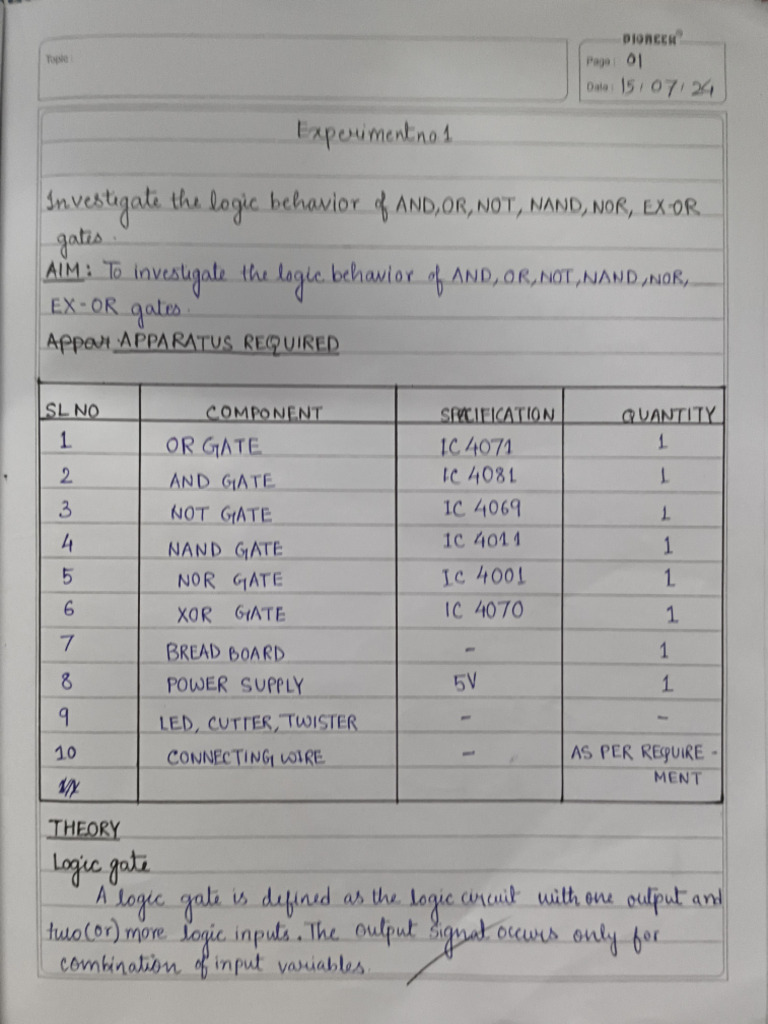 DIGREEN
Topic:
Page: 01
Date: 15/07/24
Experiment no 1
Investigate the logic behavior of AND, OR, NOT, NAND, NOR, EX-OR
gates.
AIM: To investigate the logic behavior of AND, OR, NOT, NAND, NOR,
EX-OR gates.
APPARATUS REQUIRED
SL NO COMPONENT SPECIFICATION QUANTITY
1 OR GATE IC 4071 1
2 AND GATE IC 4081 1
3 NOT GATE IC 4069 1
4 NAND GATE IC 4011 1
5 NOR GATE IC 4001 1
6 XOR GATE IC 4070 1
7 BREAD BOARD - 1
8 POWER SUPPLY 5V 1
9 LED, CUTTER, TWISTER - -
10 CONNECTING WIRE - AS PER REQUIRE-
MENT
THEORY
Logic gate
A logic gate is defined as the logic circuit with one output and
two (or) more logic inputs. The output signal occurs only for
combination of input variables.